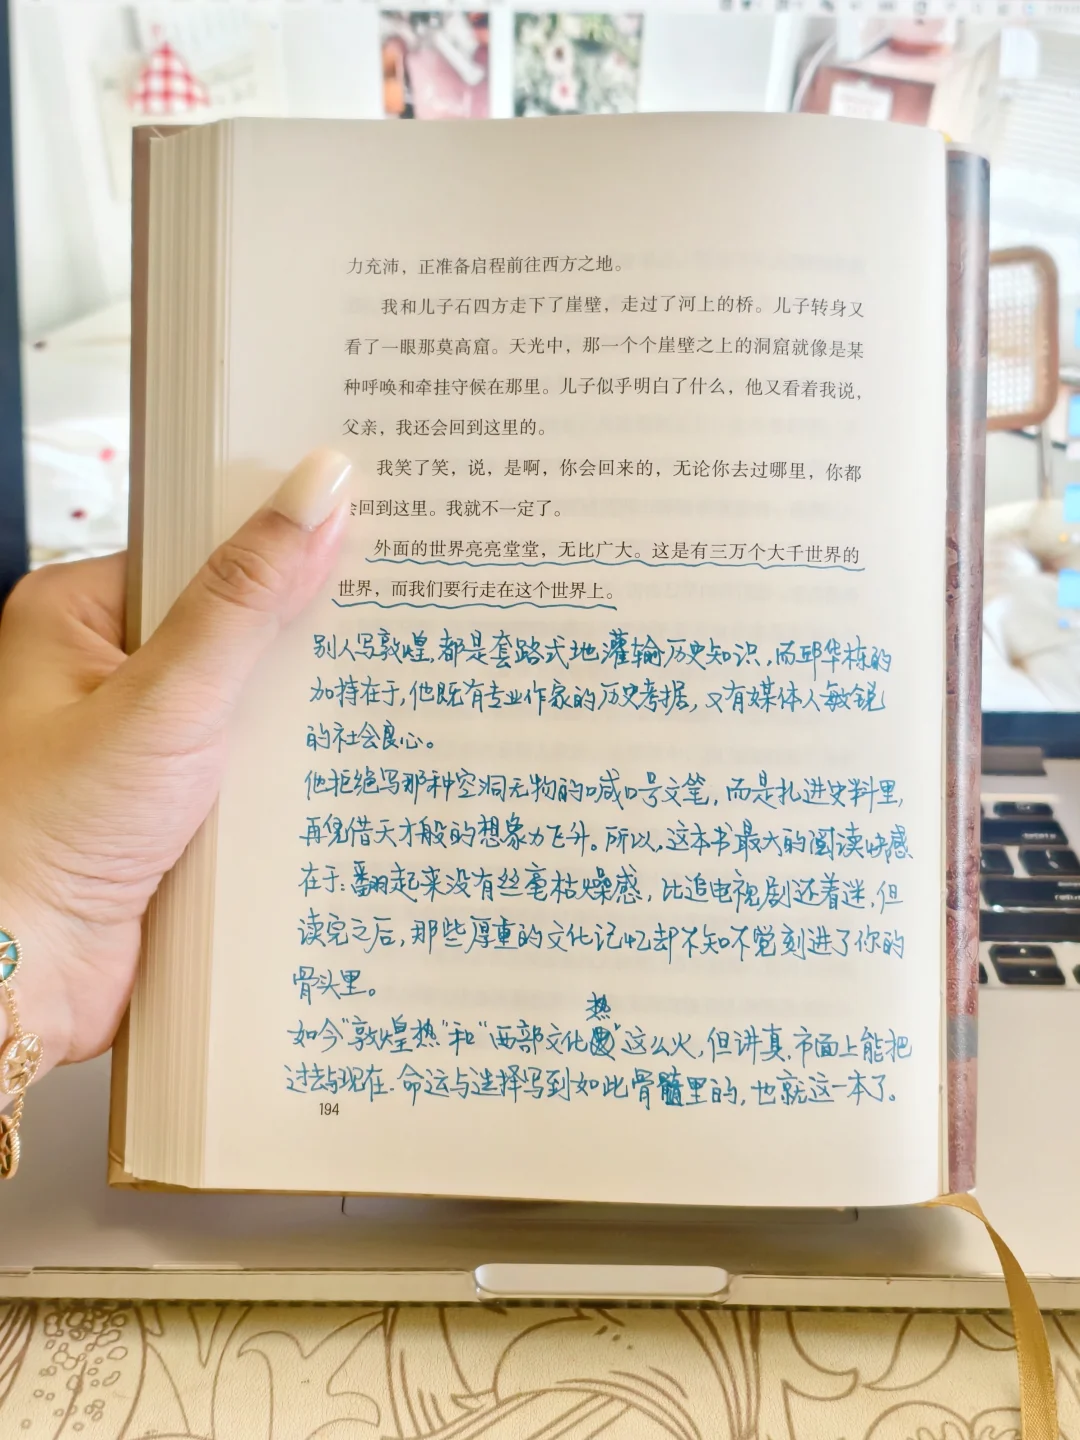 力充沛，正准备启程前往西方之地。
我和儿子石四方走下了崖壁，走过了河上的桥。儿子转身又
看了一眼那莫高窟。天光中，那一个个崖壁之上的洞窟就像是某
种呼唤和牵挂守候在那里。儿子似乎明白了什么，他又看着我说，
父亲，我还会回到这里的。
我笑了笑，说，是啊，你会回来的，无论你去过哪里，你都
会回到这里。我就不一定了。
外面的世界亮亮堂堂，无比广大。这是有三万个大千世界的
世界，而我们要行走在这个世界上。
别人写敦煌，都是套路式地灌输历史知识，而邱华栋的
加持在于，他既有专业作家的历史考据，又有媒体人敏锐
的社会良心。
他拒绝写那种空洞无物的喊口号文笔，而是扎进史料里，
再凭借天才般的想象力飞升。所以，这本书最大的阅读快感
在于：翻起来没有丝毫枯燥感，比追电视剧还着迷，但
读完之后，那些厚重的文化记忆却不知不觉刻进了你的
骨头里。
如今“敦煌热”和“西部文化热”这么火，但讲真，市面上能把
过去与现在、命运与选择写到如此骨髓里的，也就这一本了。
194